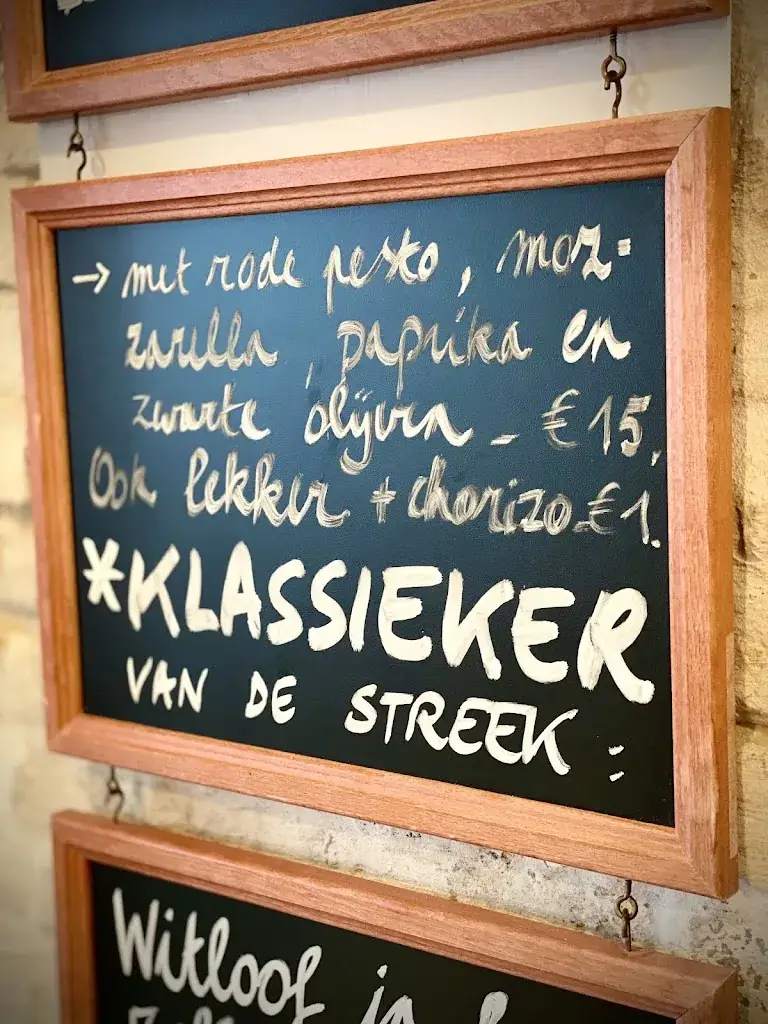 → met rode pesto, moz=
zarella, paprika en
zwarte olijven - €15,
Ook lekker + chorizo - €1.
*KLASSIEKER
VAN DE STREEK:
Witloof in